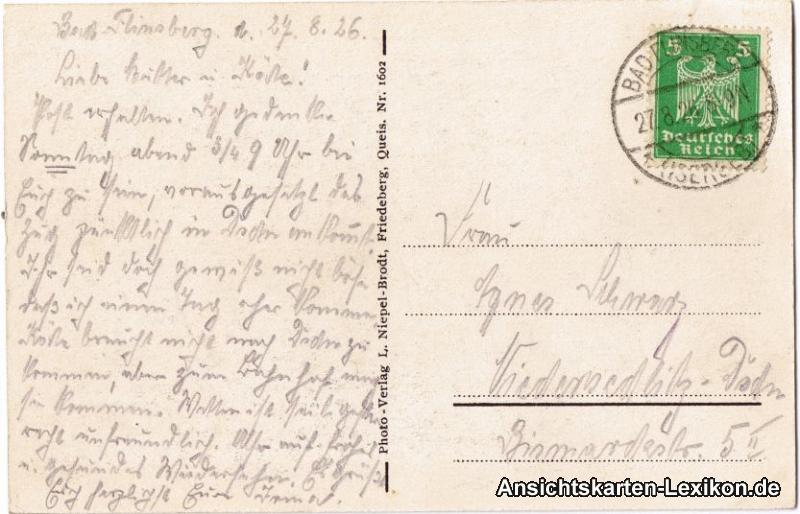 Bad Flinsberg. d. 27. 8. 26.
Liebe Mutter u Käte!
Post erhalten. Ich gedenke
Sonntag abend 3/4 9 Uhr bei
Euch zu sein, vorausgesetzt das
Zug pünktlich in Dresden ankommt
Ihr seid doch gewiß nicht böse
daß ich einen Tag eher komme
Käte braucht nicht nach Dresden zu
kommen, aber zum Bahnhof mag
sie kommen. Wetter ist seit gestern
recht unfreundlich. Also auf frohes
u. gesundes Wiedersehn. Es grüßt
Euch herzlichst Eure Irma.
Photo-Verlag L. Niepel-Brodt, Friedeberg, Queis. Nr. 1602
5 5
Deutsches
Reich
BAD FLINSBERG
27.8.26
(ISERGEB.)
Frau
Agnes Schwarz
Niedersedlitz-Dresden
Bismarckstr. 5 II
Ansichtskarten-Lexikon.de